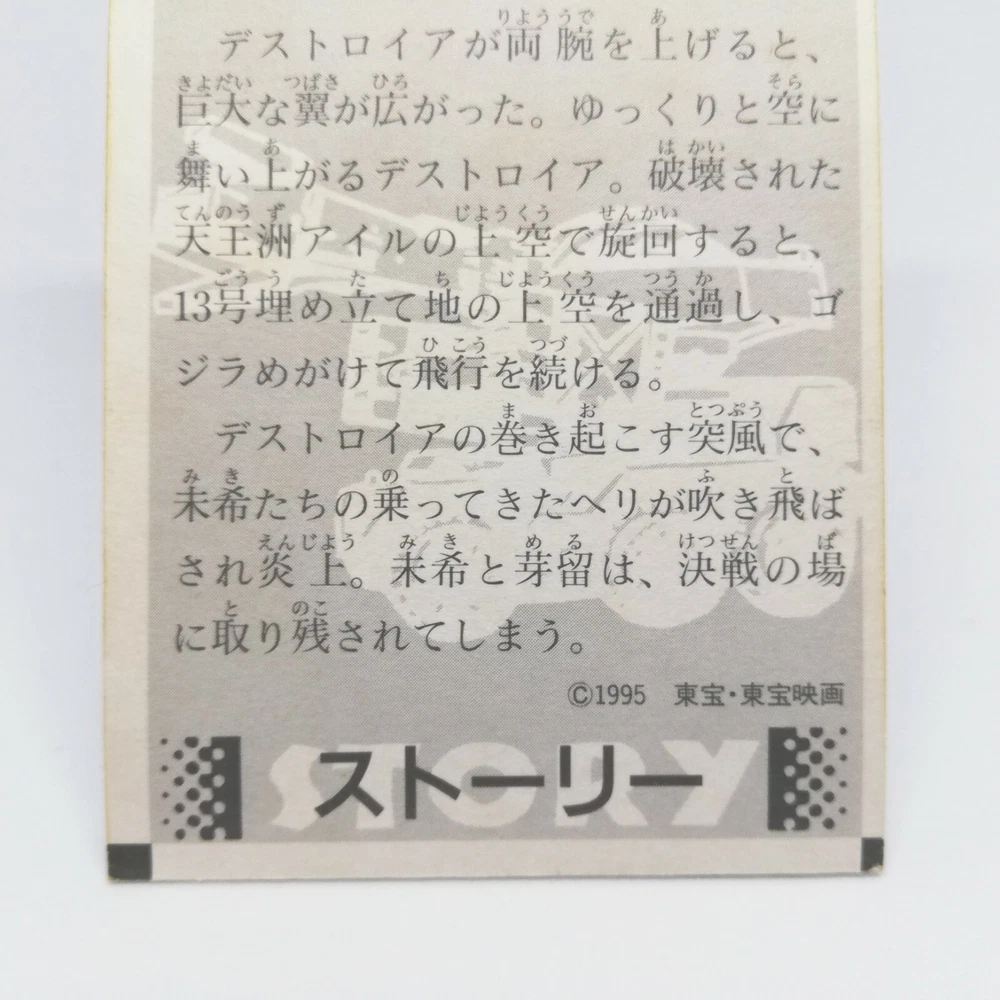 デストロイアが両腕を上げると、
巨大な翼が広がった。ゆっくりと空に
舞い上がるデストロイア。破壊された
天王洲アイルの上空で旋回すると、
13号埋め立て地の上空を通過し、ゴ
ジラめがけて飛行を続ける。
デストロイアの巻き起こす突風で、
未希たちの乗ってきたヘリが吹き飛ば
され炎上。未希と芽留は、決戦の場
に取り残されてしまう。
©1995 東宝・東宝映画
STORY
ストーリー